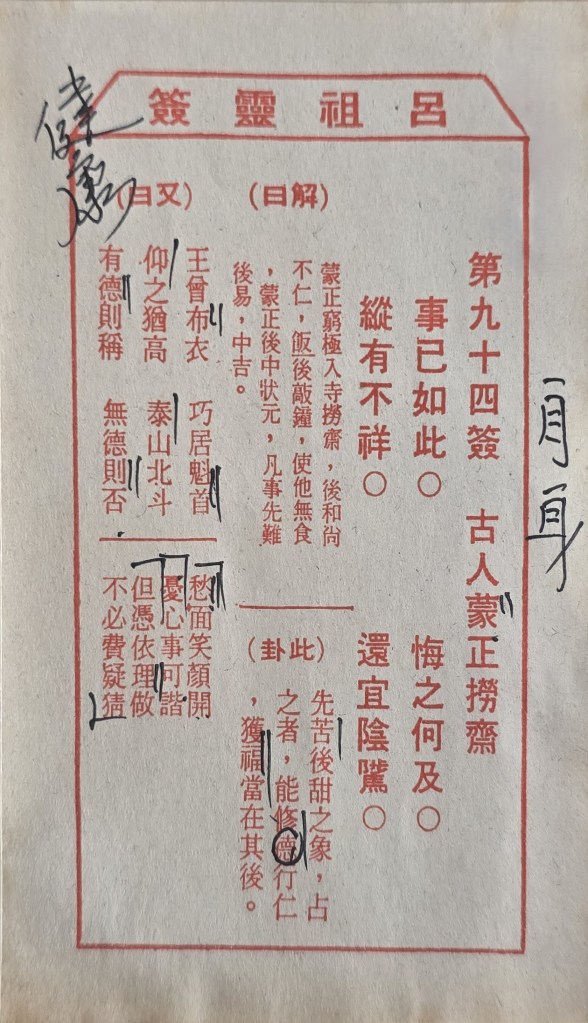 呂祖靈簽
健康
自身
第九十四簽 古人蒙正撈齋
事已如此○ 悔之何及○
縱有不祥○ 還宜陰騭○
(解曰)
蒙正窮極入寺撈齋，後和尚
不仁，飯後敲鐘，使他無食
，蒙正後中狀元，凡事先難
後易，中吉。
(此卦)
先苦後甜之象，占
之者，能修德行仁
，獲福當在其後。
(又曰)
王曾布衣 巧居魁首
仰之猶高 泰山北斗
有德則稱 無德則否
愁面笑顏開
憂心事可諧
但憑依理做
不必費疑猜